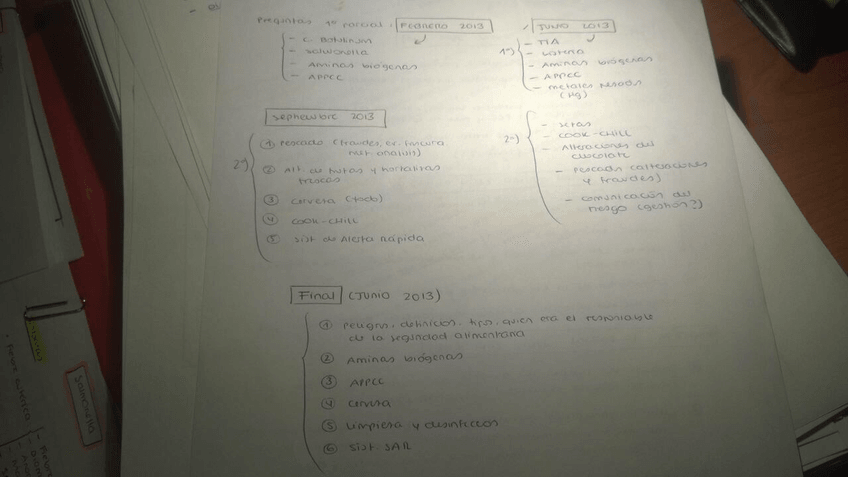 Preguntas 1er parcial: Febrero 2013
- C. Botulinum
- Salmonella
- Aminas biógenas
- APPCC
Junio 2013
1º)
- TIA
- Aminas biógenas
- APPCC
- metales pesados
(Hg)
Septiembre 2013
2º)
① Pescado (fraudes,
met. analisis)
② Alt. de frutas y hortalizas
frescas
③ Cerveza (todo)
④ COOK-CHILL
⑤ Sist de Alerta Rápida
2º)
- setas
- COOK-CHILL
- Alteraciones del
chocolate
- Pescado (alteraciones
y fraudes)
- comunicación del
riesgo (gestión?)
Final (JUNIO 2013)
① Peligro, definición, tipos, quien era el responsable
de la seguridad alimentaria
② Aminas biógenas
③ APPCC
④ Cerveza
⑤ Limpieza y desinfección
⑥ Sist. SAR
Salmonella